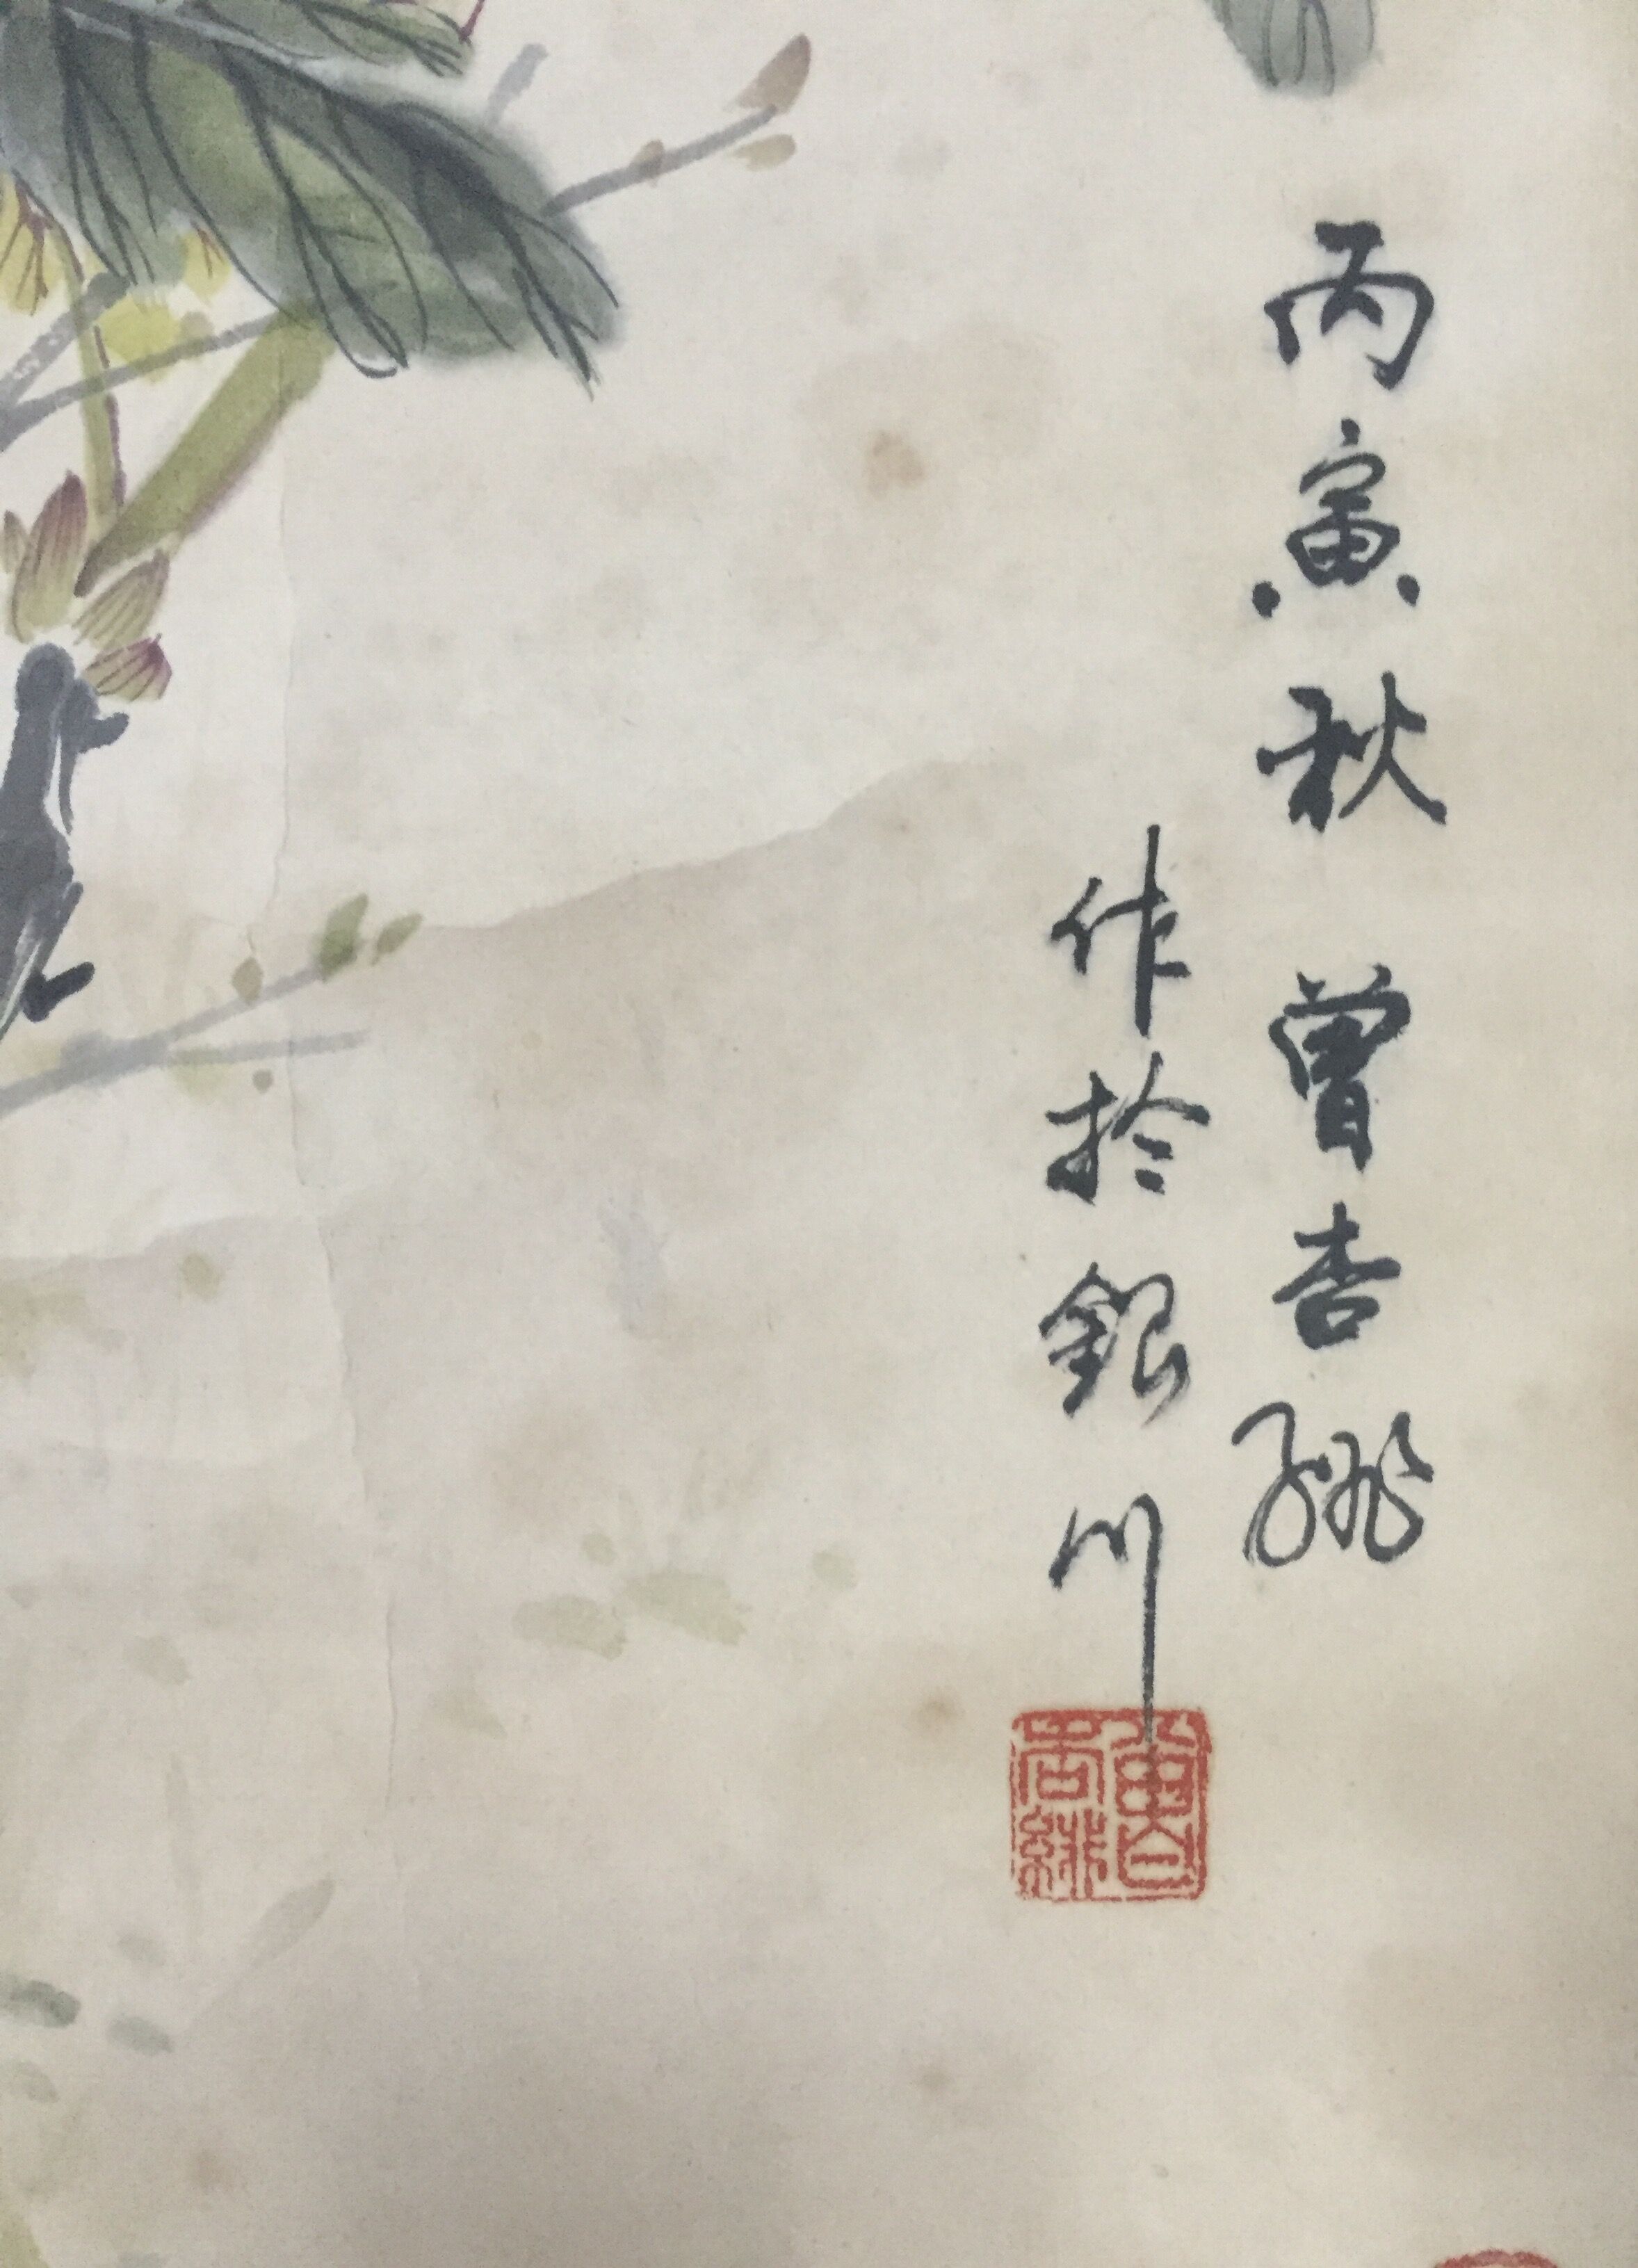 丙寅秋 曾杏緋
作於銀川
曾杏緋